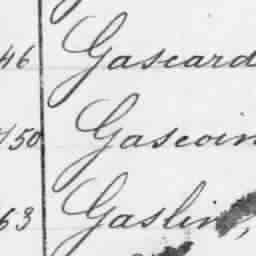 46 Gascard
150 Gascoin
63 Gaslin,